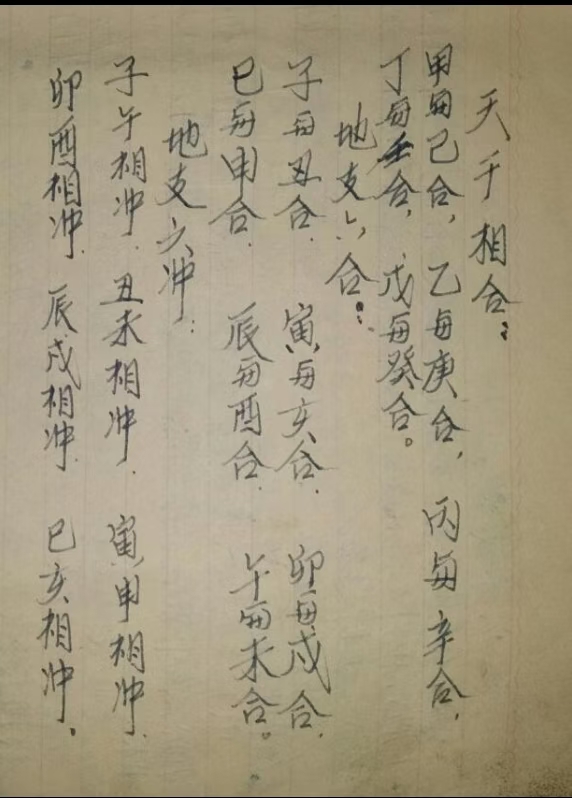 天干相合：
甲每己合，乙每庚合，丙每辛合，
丁每壬合，戊每癸合。
地支六合：
子每丑合．寅每亥合．卯每戌合．
巳每申合．辰每酉合．午每未合。
地支六冲：
子午相冲．丑未相冲．寅申相冲．
卯酉相冲．辰戌相冲．巳亥相冲。